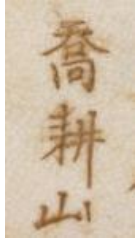 喬耕山